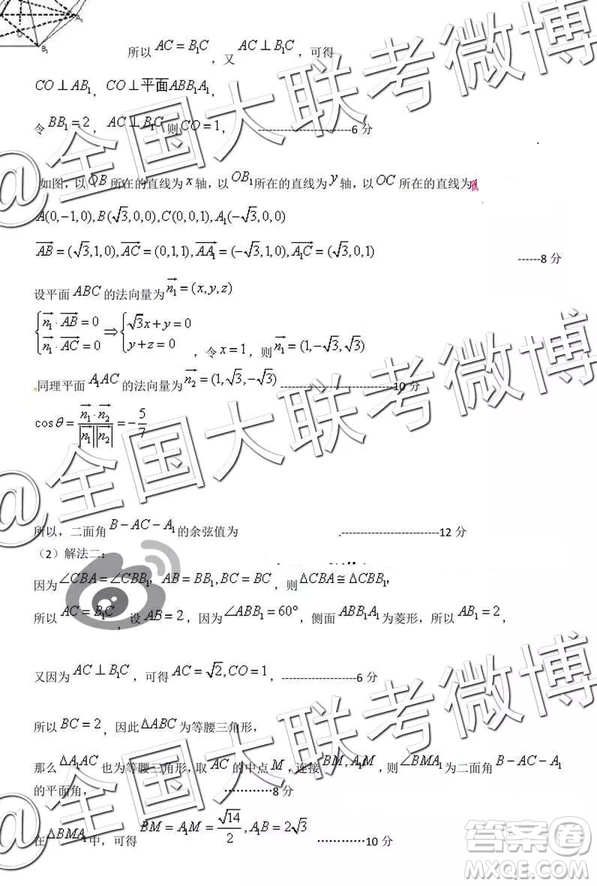 A₁
B₁
所以 AC = B₁C ，又 AC ⊥ B₁C ，可得
CO ⊥ AB₁ ，CO ⊥ 平面ABB₁A₁ ，
令 BB₁ = 2 ，AC ⊥ B₁C 则 CO = 1 ， ----------------------6 分
如图，以 OB 所在的直线为 x 轴，以 OB₁ 所在的直线为 y 轴，以 OC 所在的直线为
A(0,-1,0), B(√3,0,0), C(0,0,1), A₁(-√3,0,0)
AB = (√3,1,0), AC = (0,1,1), AA₁ = (-√3,1,0), A₁C = (√3,0,1) ------8 分
设平面 ABC 的法向量为 n₁ = (x, y, z)
{ n₁ · AB = 0 ⇒ { √3x + y = 0
{ n₁ · AC = 0 { y + z = 0 ，令 x = 1 ，则 n₁ = (1, -√3, √3)
同理平面 A₁AC 的法向量为 n₂ = (1, √3, -√3) --------------------------10 分
cos θ = n₁ · n₂ / |n₁||n₂| = -5/7
所以，二面角 B - AC - A₁ 的余弦值为 .--------------------------12 分
（2）解法二：
因为 ∠CBA = ∠CBB₁, AB = BB₁, BC = BC ，则 △CBA ≅ △CBB₁,
所以 AC = B₁C ，设 AB = 2 ，因为 ∠ABB₁ = 60° ，侧面 ABB₁A₁ 为菱形，所以 AB₁ = 2 ，
又因为 AC ⊥ B₁C ，可得 AC = √2, CO = 1 ，--------------------6 分
所以 BC = 2 ，因此 △ABC 为等腰三角形，
那么 △A₁AC 也为等腰三角形，取 AC 的中点 M ，连接 BM, A₁M ，则 ∠BMA₁ 为二面角 B - AC - A₁
的平面角， ............8 分
在 △BMA₁ 中，可得 BM = A₁M = √14/2, A₁B = 2√3 ............10 分
@全国大联考微博
@全国大联考微博
@全国大联考微博
答案圈
MXQE.COM